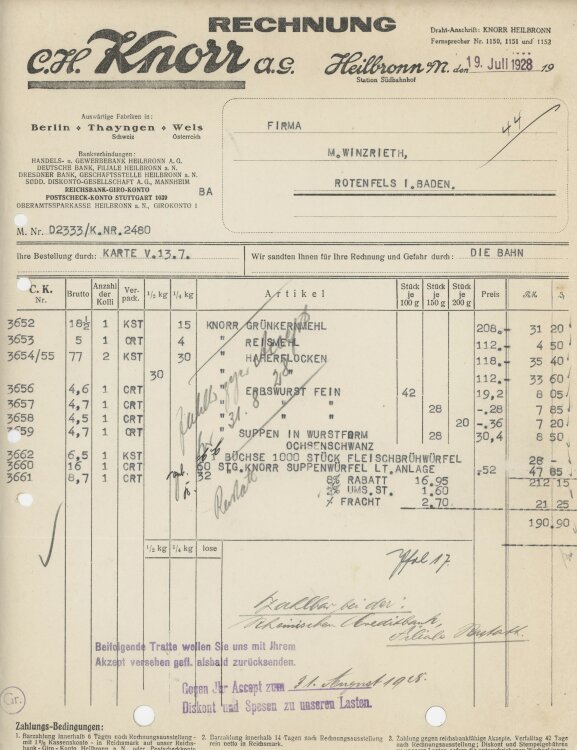 RECHNUNG
C.H. Knorr A.G.
Draht-Anschrift: KNORR HEILBRONN
Fernsprecher Nr. 1150, 1151 und 1152
Heilbronn a/N. den 19. Juli 1928 19
Station Südbahnhof
Auswärtige Fabriken in:
Berlin + Thayngen + Wels
Schweiz Österreich
Bankverbindungen:
HANDELS- u. GEWERBEBANK HEILBRONN A.G.
DEUTSCHE BANK, FILIALE HEILBRONN a. N.
DRESDNER BANK, GESCHÄFTSSTELLE HEILBRONN a. N.
SÜDD. DISKONTO-GESELLSCHAFT A.G., MANNHEIM
REICHSBANK-GIRO-KONTO
POSTSCHECK-KONTO STUTTGART 1029
OBERAMTSSPARKASSE HEILBRONN a. N., GIROKONTO 1
BA
FIRMA
44
M. WINZRIETH,
ROTENFELS I.BADEN.
M. Nr. D2333/K.NR.2480
Ihre Bestellung durch: KARTE V.13.7. Wir sandten Ihnen für Ihre Rechnung und Gefahr durch: DIE BAHN
C.K. Nr. Brutto Anzahl der Kolli Ver-pack. 1/2 kg 1/4 kg Artikel Stück je 100 g Stück je 150 g Stück je 200 g Preis
3652 18½ 1 KST 15 KNORR GRÜNKERNMEHL 208.- 31 20
3653 5 1 CRT 4 " REISMEHL 112.- 4 50
3654/55 77 2 KST 30 " HAFERFLOCKEN 118.- 35 40
30 112.- 33 60
3656 4,6 1 CRT " ERBSWURST FEIN 42 19,2 8 05
3657 4,7 1 CRT " " 28 -.28 7 85
3658 4,5 1 CRT " " 20 -.36 7 20
3659 4,7 1 CRT " SUPPEN IN WURSTFORM 28 30,4 8 50
OCHSENSCHWANZ
3662 6,5 1 KST 1 BÜCHSE 1000 STÜCK FLEISCHBRÜHWÜRFEL 28 -
3660 16 1 CRT 60 STG.KNORR SUPPENWÜRFEL LT.ANLAGE -.52 47 85
3661 8,7 1 CRT 32 8% RABATT 16.95 212 15
2% UMS.ST. 1.60
FRACHT 2.70 21 25
190.90
31. 8. 28
1/2 kg 1/4 kg lose
Zahlbar bei der:
Rheinischen Creditbank,
Filiale Rastatt.
Beifolgende Tratte wollen Sie uns mit Ihrem
Akzept versehen gefl. alsbald zurücksenden.
Gegen Ihr Accept zum 31. August 1928.
Diskont und Spesen zu unseren Lasten.
Gr.
Zahlungs-Bedingungen:
1. Barzahlung innerhalb 6 Tagen nach Rechnungsausstellung
2. Barzahlung innerhalb 14 Tagen nach Rechnungsausstellung
rein netto in Reichsmark.
3. Zahlung gegen reichsbankfähige Akzepte, Verfalltag 42 Tage